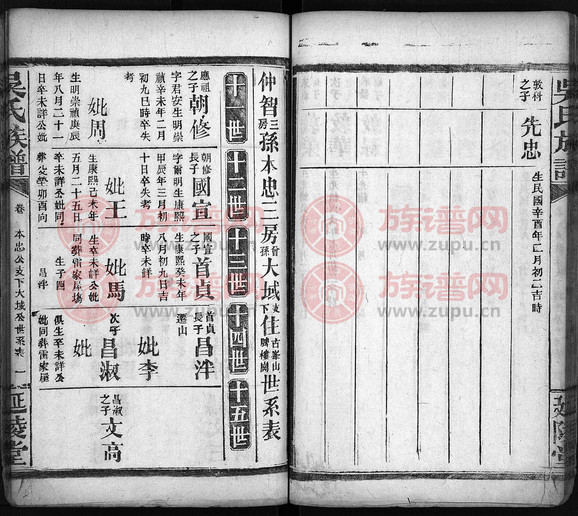 吳氏族譜
延陵堂
敦科之子
先忠
生民國辛酉年二月初二吉時
仲智三房孫本忠二房曾孫大城支下住古峯山世系表
十一世
十二世
十三世
十四世
十五世
應祖之子朝修
字君安生明崇
禎辛未年二月
初九巳時卒失
考
妣周
生明崇禎庚辰
年八月二十一
日卒未詳公妣
朝修長子國宣
字爾明生康熙
甲辰年三月初
十日卒失考
妣王
生康熙己未年
五月二十五日
卒未詳公妣同
國宣長子首貞
生康熙癸未年
八月初九日吉
時卒未詳
妣馬
生卒未詳公妣
同葬雷家屋塆
生子四
昌泮
首貞長子昌泮
遷山
妣李
次子昌淑
妣
俱生卒未詳公
妣同葬雷家屋
昌淑之子文高
吳氏族譜
卷
本忠公支下大城公世系表
一
延陵堂
族谱网
www.zupu.cn
族谱网
www.zupu.cn
族谱网
www.zupu.cn
族谱网
www.zupu.cn